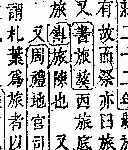 有故而祭亦曰旅
旅 書旅獒西旅底
傳旅陳也 又
又周禮地官司
謂札葉爲旅者以